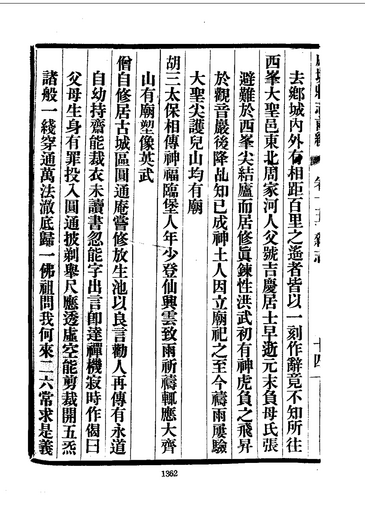 去鄉城內外有相距百里之遙者皆以一刻作辭竟不知所往
西峯大聖邑東北周家河人父號吉慶居士早逝元末負母氏張
避難於西峯尖結廬而居修眞鍊性洪武初有神虎負之飛昇
於觀音巖後降乩知已成神土人因立廟祀之至今禱雨屢驗
大聖尖護兒山均有廟
胡三太保相傳神福臨堡人年少登仙興雲致雨祈禱輒應大齊
山有廟塑像英武
僧自修居古城區圓通庵嘗修放生池以良言勸人再傳有永道
自幼持齋能裁衣未讀書忽能字出言卽達禪機寂時作偈曰
父母生身有罪投入圓通披剃舉尺應透虛空能剪裁開五炁
諸般一綫穿通萬法澈底歸一佛祖問我何來二六常求是義
十四
1362